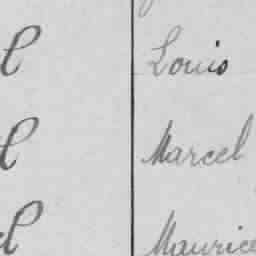 Louis
Marcel
Maurice